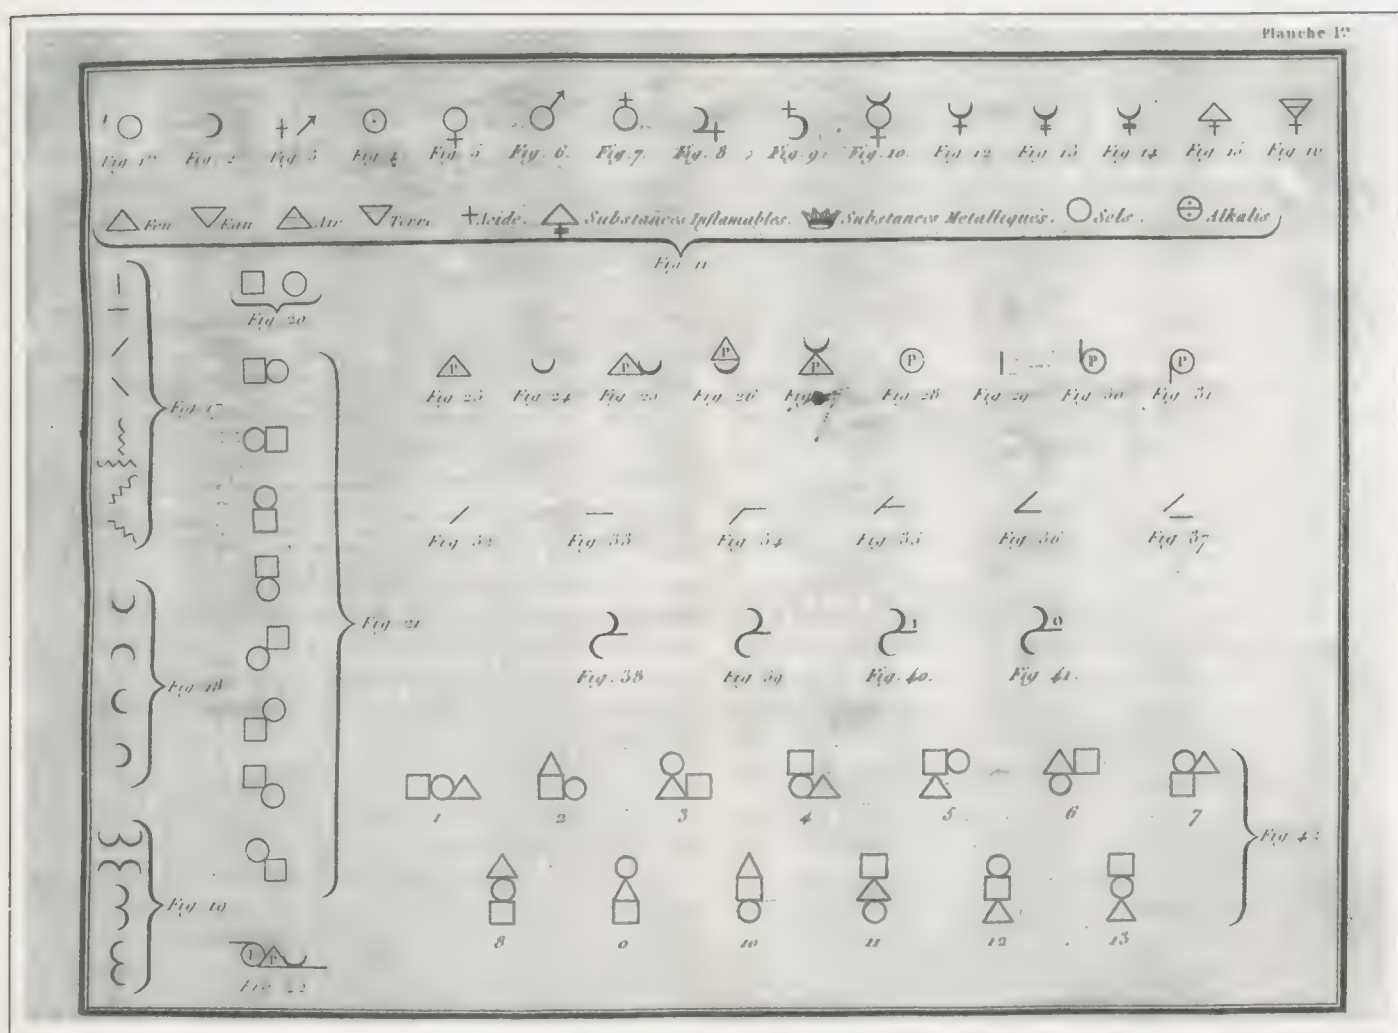 Planche 1re
Fig 1re Fig. 2 Fig 3 Fig 4 Fig 5 Fig. 6. Fig. 7. Fig. 8 Fig. 9. Fig. 10. Fig 12 Fig 13 Fig 14 Fig 15 Fig 16
Feu Eau Air Terre Acide. Substances Inflamables. Substances Metalliques. Sels. Alkalis
Fig 11
Fig 20
Fig 17
P P P P P P P
Fig 23 Fig 24 Fig 25 Fig 26 Fig 28 Fig 29 Fig 30 Fig 31
Fig 32 Fig 33 Fig 34 Fig 35 Fig 36 Fig 37
Fig 21
1 0
Fig. 38 Fig 39 Fig. 40. Fig 41.
Fig 18
1 2 3 4 5 6 7
Fig 42
Fig 19
8 9 10 11 12 13
P
Fig 22